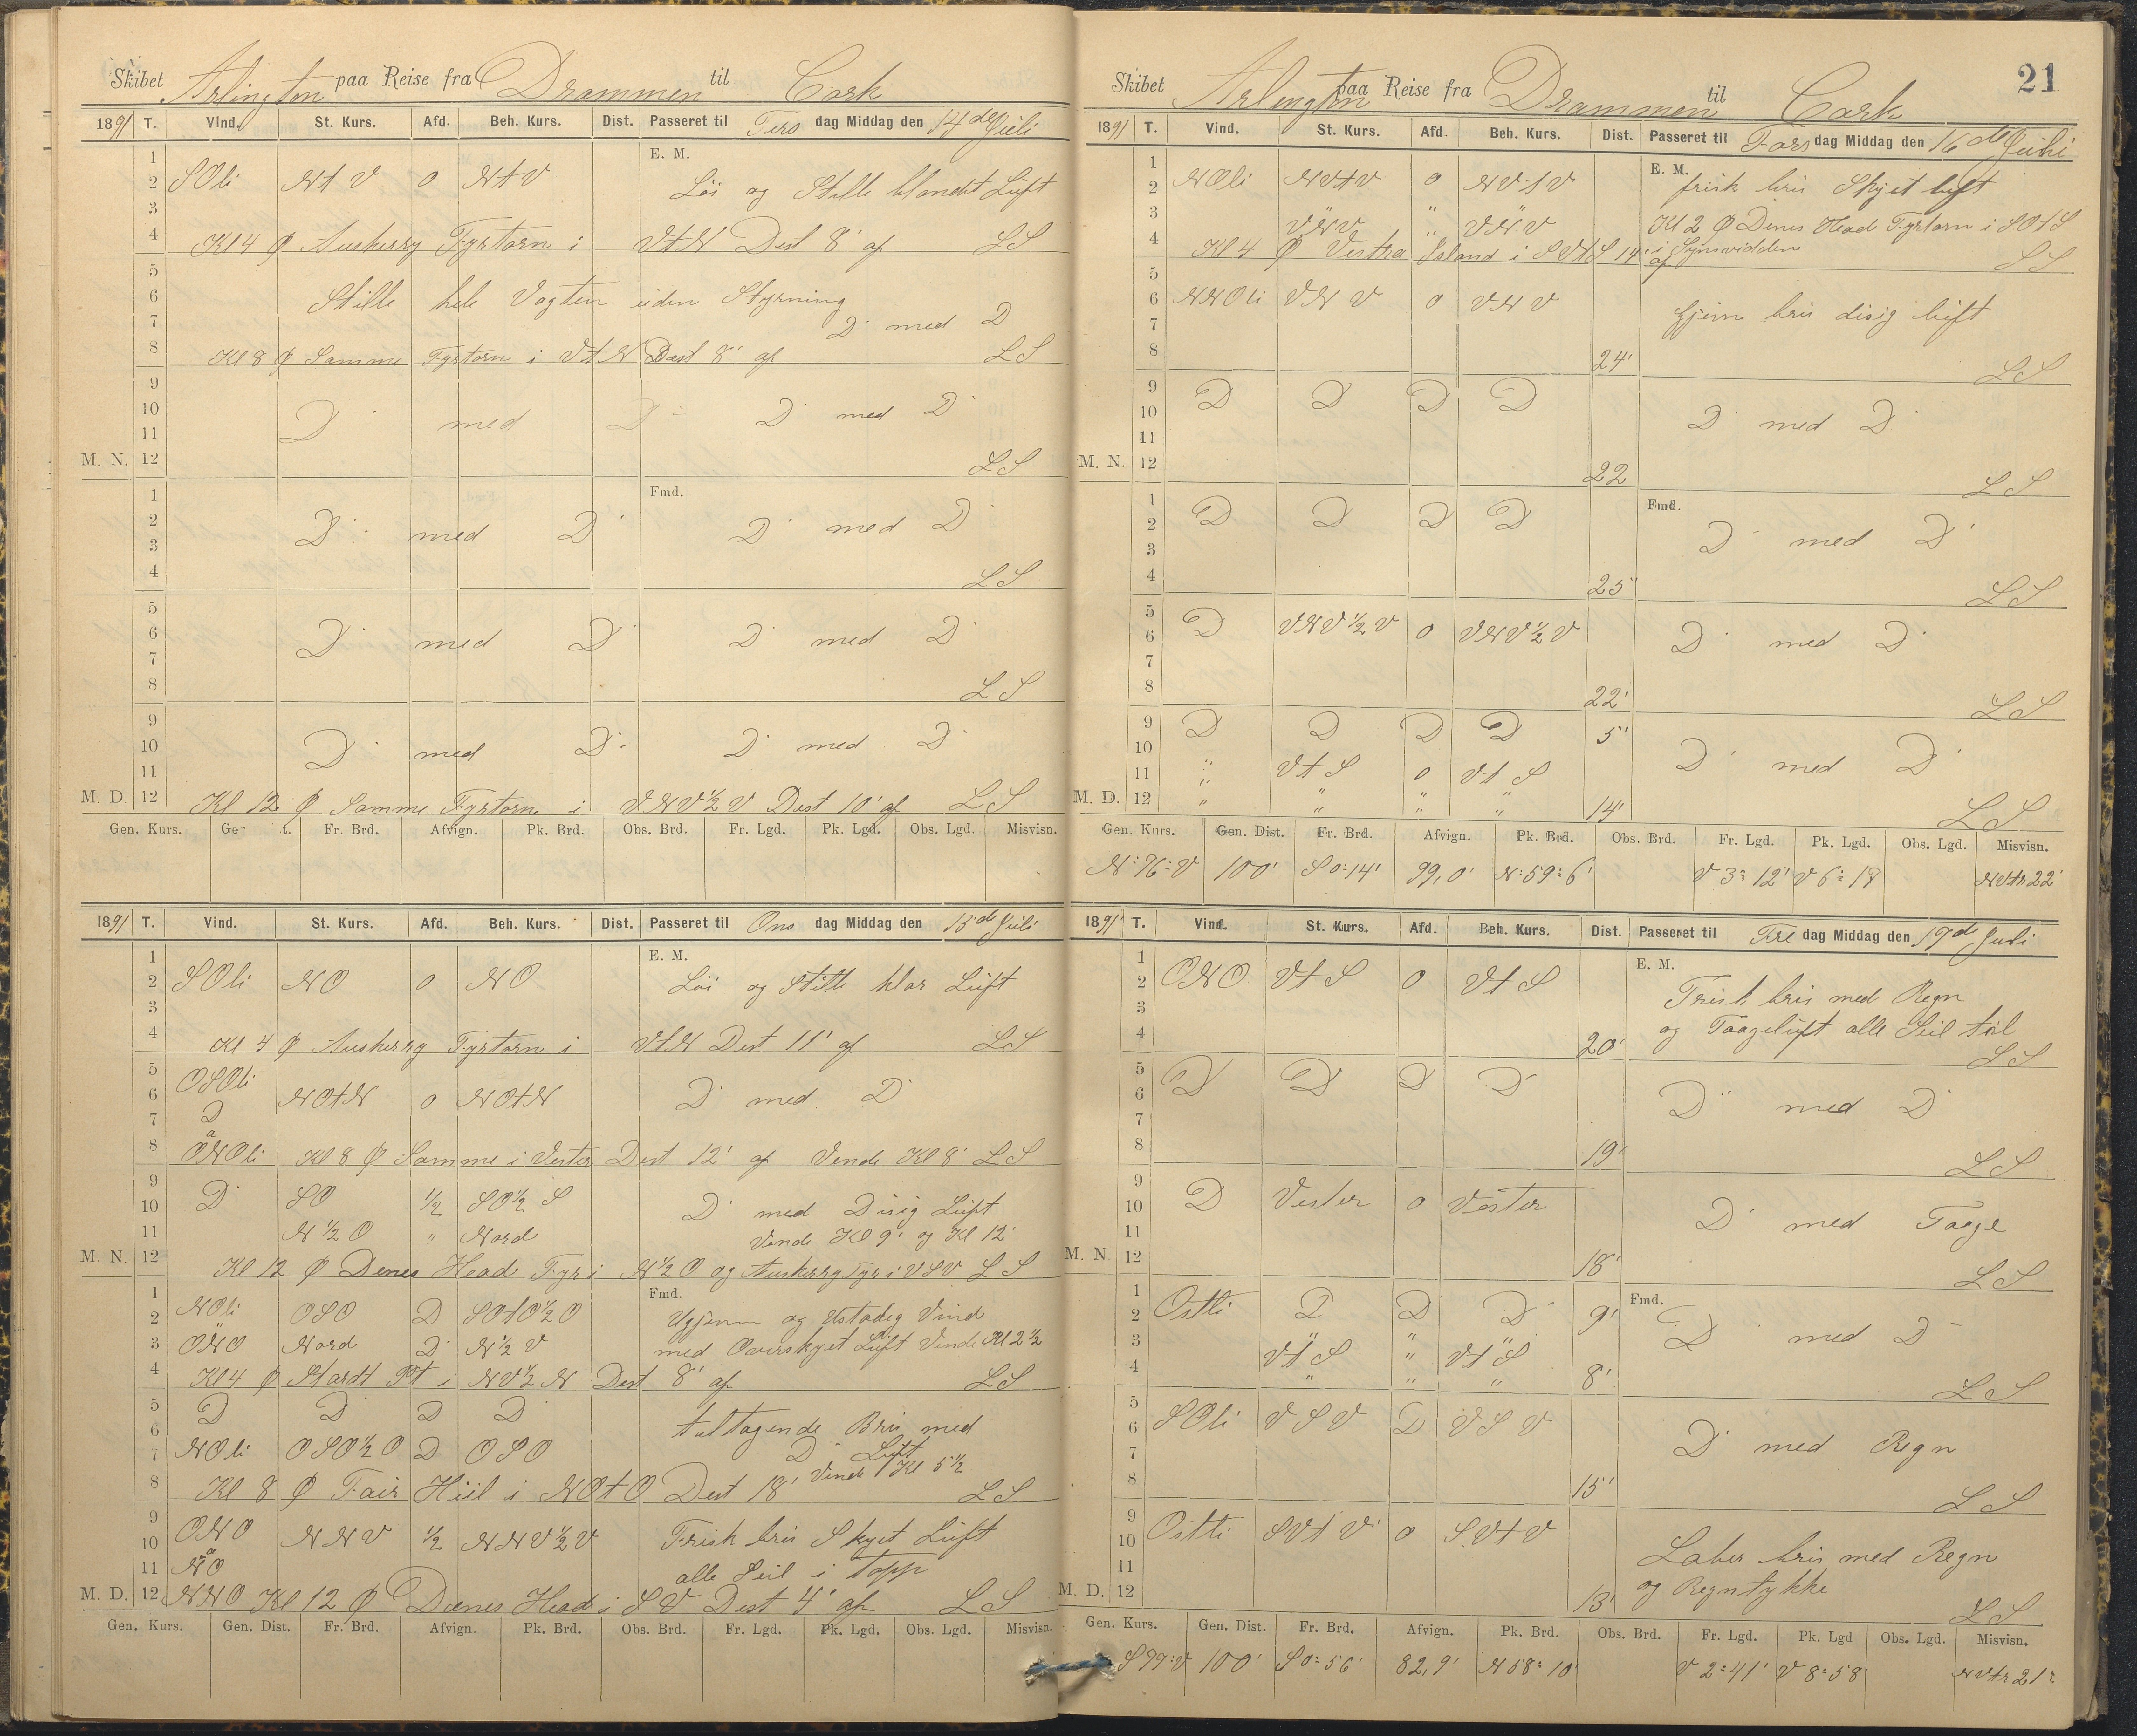 Skibet Arlington paa Reise fra Drammen til Cork
1891 T. Vind. St. Kurs. Afd. Beh. Kurs. Dist. Passeret til Tirs dag Middag den 14de Juli
1 E. M.
2 SOli NtV 0 NtV Löi og Stille blandt Luft
3
4 Kl 4 Ø Auskerry Fyrtorn i VtN Dest 8' af LS
5
6 Stille hele Vagten uden Styrning
7 D med D
8 Kl 8 Ø Samme Fyrtorn i VtN Dest 8' af LS
9
10 D med D D med D
11
M. N. 12 LS
1 Fmd.
2 D med D D med D
3
4 LS
5
6 D med D D med D
7
8 LS
9
10 D med D D med D
11
M. D. 12 Kl 12 Ø Samme Fyrtorn i VNV½V Dest 10' af LS
Gen. Kurs. Ge t. Fr. Brd. Afvign. Pk. Brd. Obs. Brd. Fr. Lgd. Pk. Lgd. Obs. Lgd. Misvisn.
1891 T. Vind. St. Kurs. Afd. Beh. Kurs. Dist. Passeret til Ons dag Middag den 15de Juli
1 E. M.
2 SOli NO 0 NO Löi og Stille klar Luft
3
4 Kl 4 Ø Auskerry Fyrtorn i VtN Dest 11' af LS
5 OSOli
6 NOtN 0 NOtN D med D
7 D
8 a ONOli Kl 8 Ø Samme i Vester Dest 12' af Vende Kl 8' LS
9
10 D SO ½ SO½S D med Disig Luft
11 N½O " Nord Vende Kl 9' og Kl 12'
M. N. 12 Kl 12 Ø Denes Head Fyr i N½O og Auskerry Fyr i VSV LS
1 Fmd.
2 NOli OSO D SOtO½O Ujevn og Ustadig Vind
3 ONO Nord D N½V med Overskyet Luft Vende Kl 2½
4 Kl 4 Ø Stardt Pt i NV½N Dest 8' af LS
5 D D D D tiltagende Bris med
6 D Luft
7 NOli OSO½O D OSO Vende Kl 5½
8 Kl 8 Ø Fair Hiil i NOtO Dest 18' LS
9
10 ONO NNV ½ NNV½V Frisk bris Skyet Luft
11 a NO alle Seil i Topp
M. D. 12 NNO Kl 12 Ø Denes Head i SV Dest 4' af LS
Gen. Kurs. Gen. Dist. Fr. Brd. Afvign. Pk. Brd. Obs. Brd. Fr. Lgd. Pk. Lgd. Obs. Lgd. Misvisn.
21
Skibet Arlington paa Reise fra Drammen til Cork
1891 T. Vind. St. Kurs. Afd. Beh. Kurs. Dist. Passeret til Tors dag Middag den 16de Juli
1 E. M.
2 NOli NVtV 0 NVtV frisk bris Skyet luft
3 " VNV " VNV Kl 2 Ø Denes Head Fyrtorn i SOtS
i Synsvidden
4 Kl 4 Ø Vestra Island i SVtS 14' af LS
5
6 NNOli VNV 0 VNV Gjevn bris disig luft
7
8 24' LS
9 D D D D
10 D med D
11
M. N. 12 22 LS
1 Fmd.
2 D D D D D med D
3
4 25' LS
5
6 D VNV½V 0 VNV½V D med D
7
8 22' LS
9 D D D D 5'
10 D med D
11 " VtS 0 VtS
M. D. 12 " " " " 14' LS
Gen. Kurs. Gen. Dist. Fr. Brd. Afvign. Pk. Brd. Obs. Brd. Fr. Lgd. Pk. Lgd. Obs. Lgd. Misvisn.
N:76:V 100' S 0:14' 99,0' N:59:6' V 3:12' V 6:17 NVtr 22'
1891 T. Vind. St. Kurs. Afd. Beh. Kurs. Dist. Passeret til Fre dag Middag den 17de Juli
1 E. M.
2 ONO VtS 0 VtS Frisk bris med Regn
3 og Taageluft alle Seil til
4 20' LS
5 D D D D
6 D med D
7
8 19' LS
9
10 D Vester 0 Vester D med Taage
11
M. N. 12 18' LS
1 Fmd.
2 Ostli D D D 9' D med D
3 VtS " VtS
4 " " " 8' LS
5
6 SOli VSV D VSV D med Regn
7
8 15' LS
9
10 Ostli SVtV 0 SVtV Laber bris med Regn
11 og Regntykke
M. D. 12 13' LS
Gen. Kurs. Gen. Dist. Fr. Brd. Afvign. Pk. Brd. Obs. Brd. Fr. Lgd. Pk. Lgd Obs. Lgd. Misvisn.
S 99:V 100' S 0:56' 82,9' N 58:10' V 2:41' V 8:58 NVtr 21: